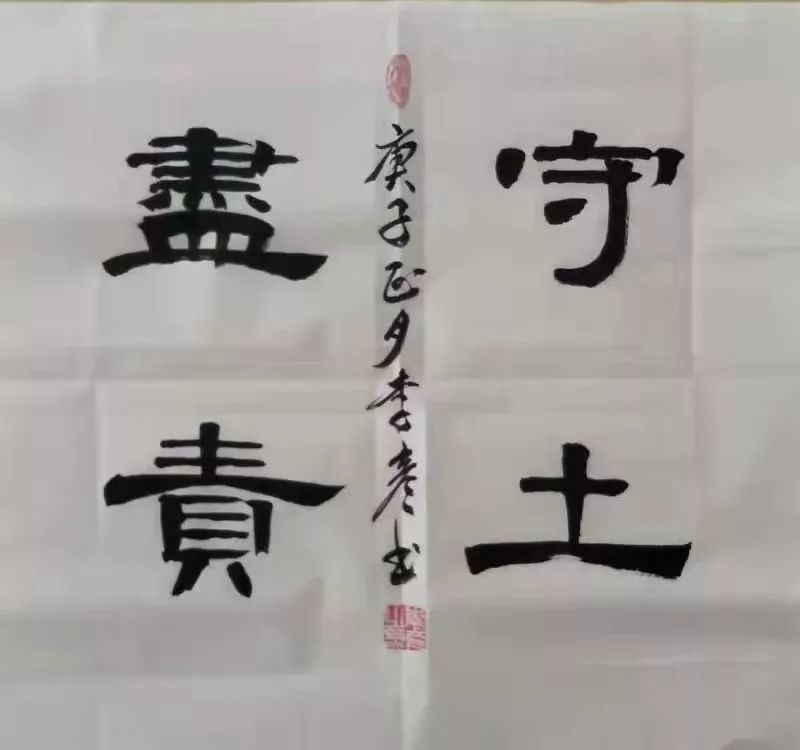 守土
盡責
庚子正月李彦书